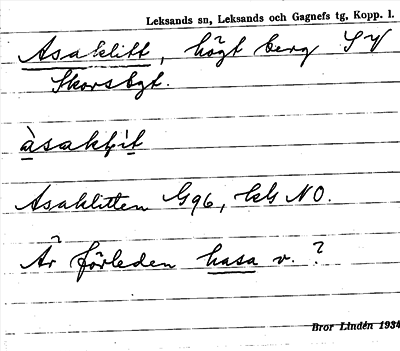 Leksands sn, Leksands och Gagnefs tg, Kopp. l.
Asaklitt, högt berg SV
Skorsbgt.
àsakḷìt
Asaklitten G96, kbl NO.
Är förleden hasa v. ?
Bror Lindén 1934